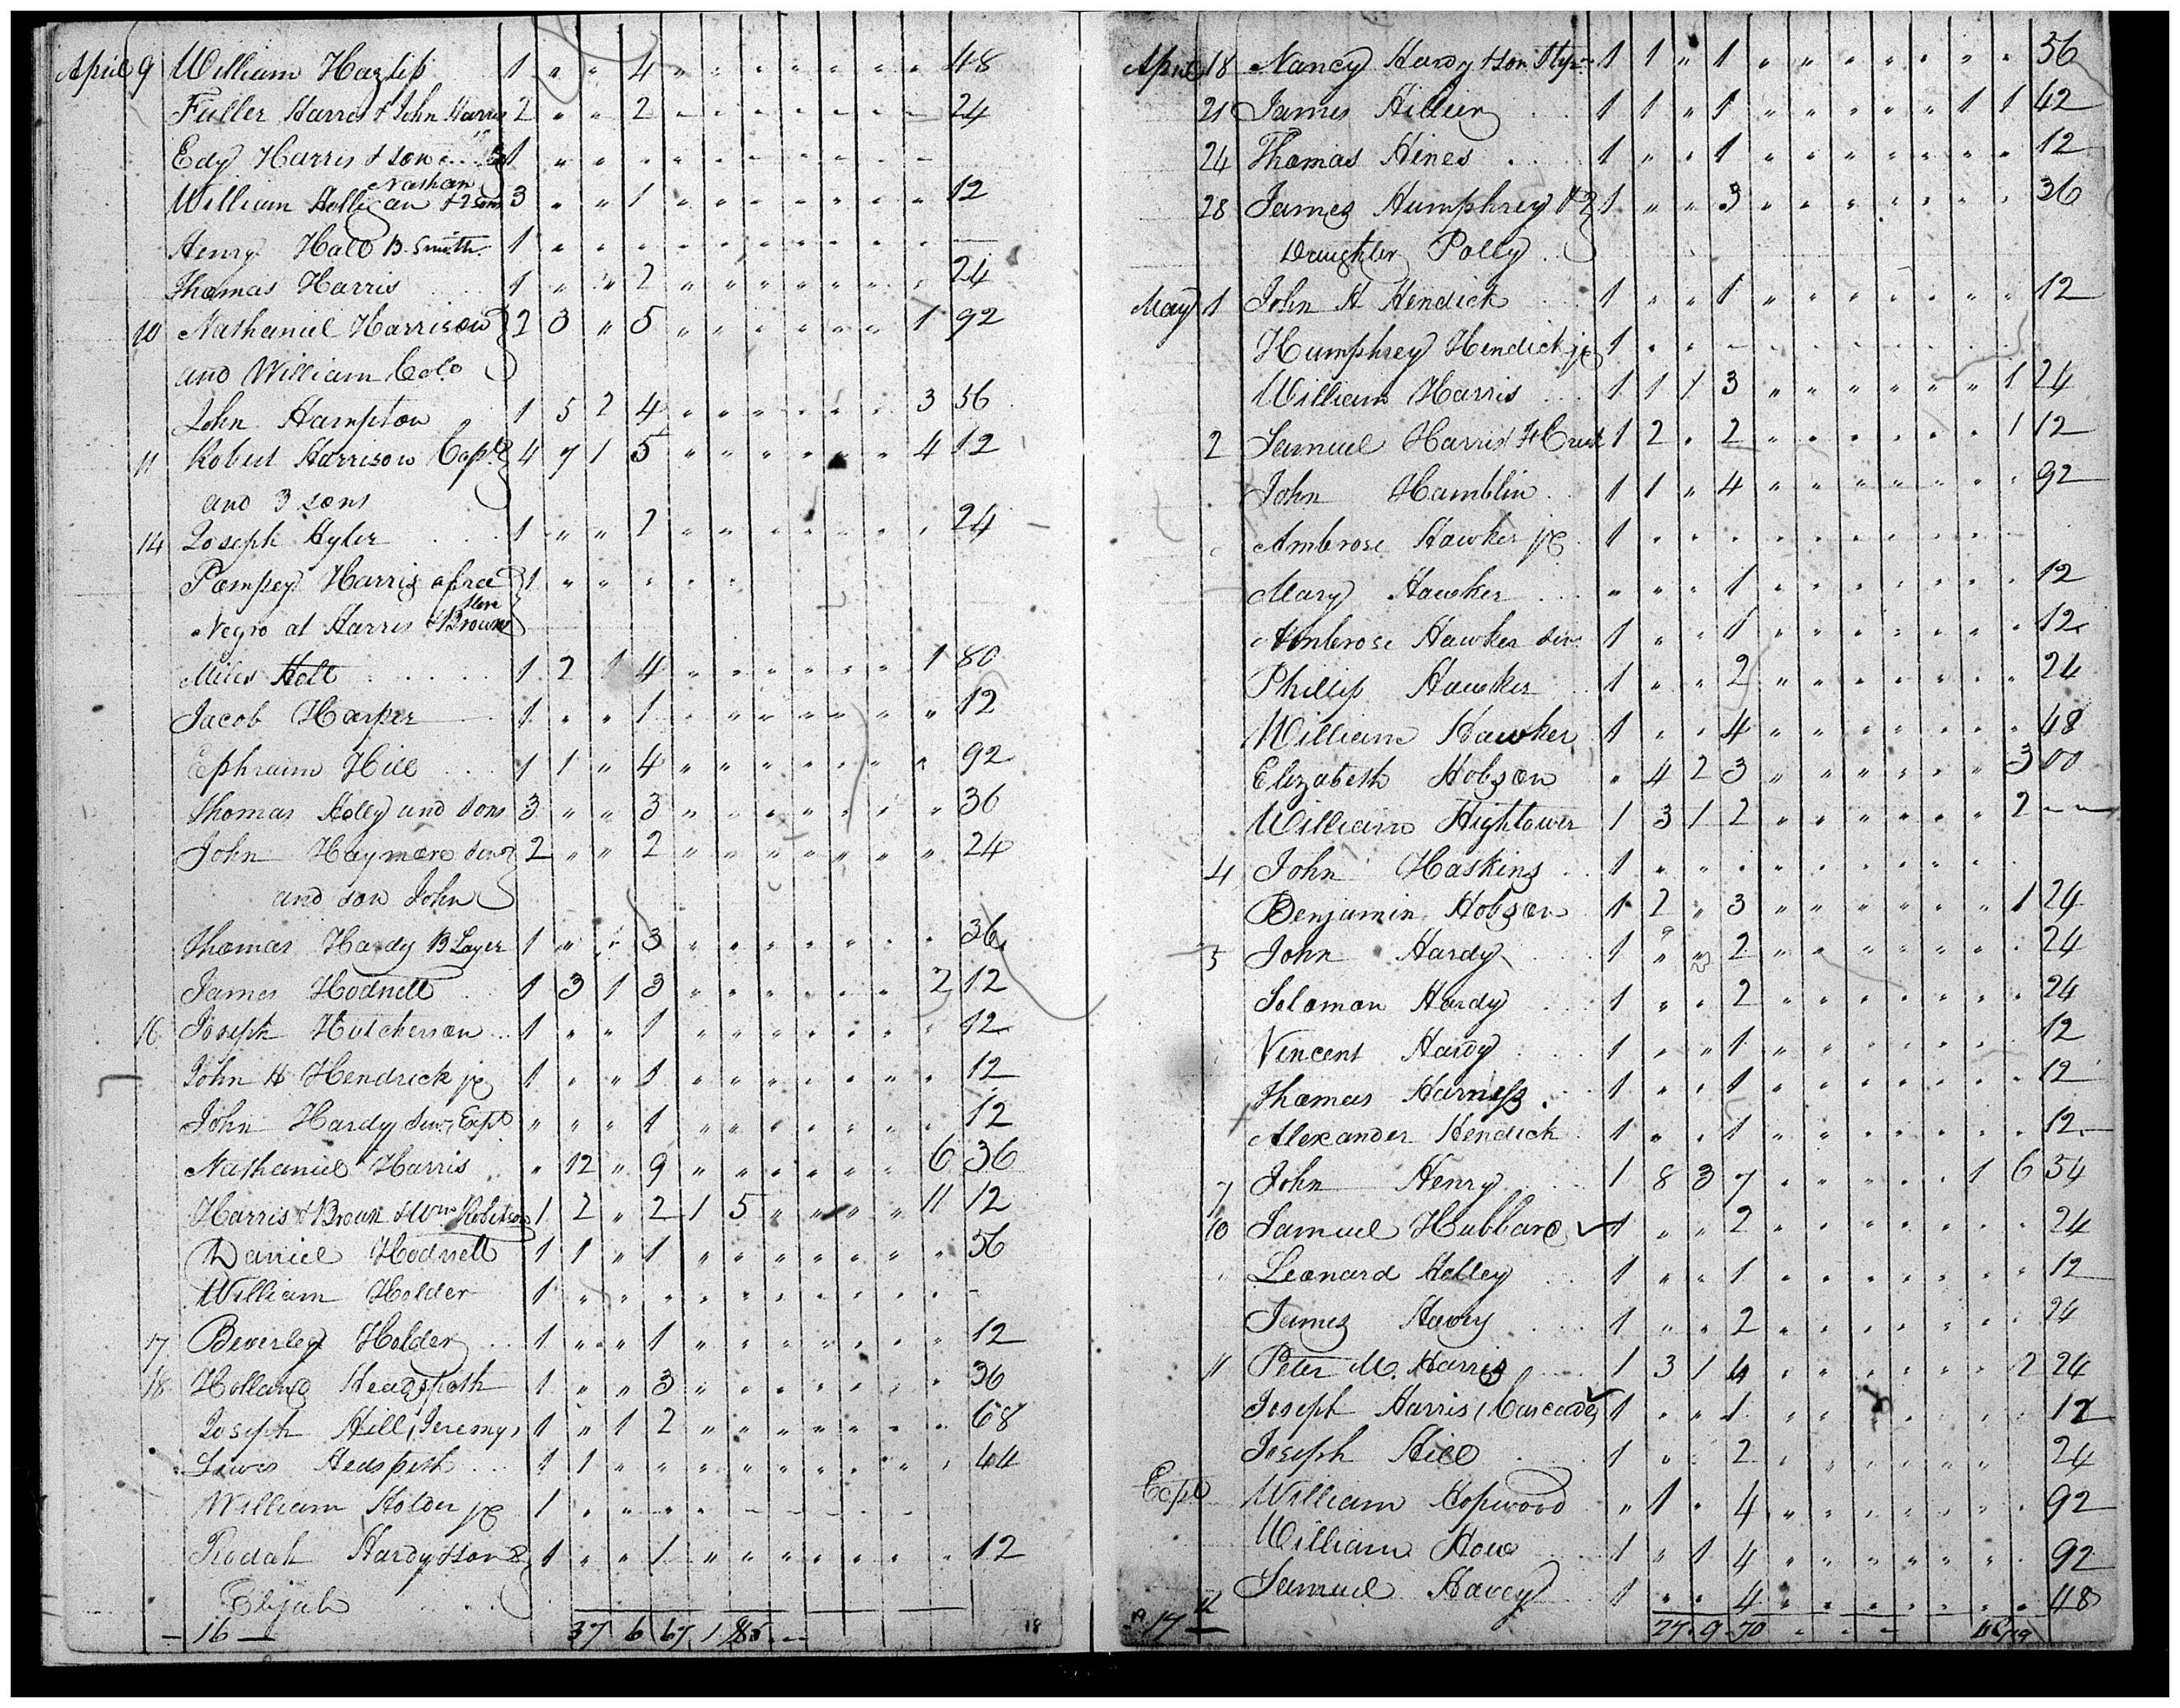 April 9 William Hazlip 1 " " 4 " " " " " " " 48
Fuller Harris & John Harris 2 " " 2 - - - - - - - 24
Edy Harris & son 1 " " " " " " " " " -
Nathan
William Holligan & 2 sons 3 " " 1 " " " " " " " 12
Henry Hall B. Smith 1 " " " " " " " " " " —
Thomas Harris 1 " " 2 " " " " " " " 24
10 Nathaniel Harrison 2 3 " 5 " " " " " " 1 92
and William Colo
John Hampton 1 5 2 4 " " " " " " 3 56
11 Robert Harrison Capt. 4 7 1 5 " " " " " " 4 12
and 3 sons
14 Joseph Hyler 1 " " 2 " " " " " " " 24
Pompey Harris a free 1 " " " " "
Store
Negro at Harris & Brown
Miles Holt 1 2 1 4 " " " " " " 1 80
Jacob Harper 1 " " 1 " " " " " " " 12
Ephraim Hill 1 1 " 4 " " " " " " " 92
Thomas Holly and sons 3 " " 3 " " " " " " " 36
John Haymore Senr 2 " " 2 " " " " " " " 24
and son John
Thomas Hardy B Layer 1 " " 3 " " " " " " " 36
James Hodnett 1 3 1 3 " " " " " " 2 12
16 Joseph Hutcherson 1 " " 1 " " " " " " " 12
John H Hendrick jr 1 " " 1 " " " " " " " 12
John Hardy Senr Expt " " " 1 " " " " " " " 12
Nathaniel Harris " 12 " 9 " " " " " " 6 36
Harris & Brown & Wm Robertson 1 2 " 2 1 5 " " " " 11 12
Daniel Hodnett 1 1 " 1 " " " " " " " 56
William Holder 1 " " " " " " " " " " -
17 Beverley Holder 1 " " 1 " " " " " " " 12
18 Holland Headspeth 1 " " 3 " " " " " " " 36
Joseph Hill (Jeremy) 1 " 1 2 " " " " " " " 68
Lewis Hedspeth 1 1 " " " " " " " " " 44
William Holder jr 1 " " " " - - - - -
Rodah Hardy & son 1 " " 1 " " " " " " " 12
Elijah
- 16 - 37 6 67 1 85 - -
18
April 18 Nancy Hardy & son 1 1 " 1 " " " " " " " 56
21 James Hillier 1 1 " 1 " " " " " 1 1 42
24 Thomas Hines 1 " " 1 " " " " " " " 12
28 James Humphrey & 1 " " 3 " " " " " " " 36
Daughter Polly
May 1 John H Hendick 1 " " 1 " " " " " " " 12
Humphrey Hendick jr 1 " " - - - - - - -
William Harris 1 1 1 3 " " " " " " 1 24
2 Samuel Harris H Creek 1 2 " 2 " " " " " " 1 12
John Hamblin 1 1 " 4 " " " " " " " 92
Ambrose Hawker jr 1 " " " " " " " " "
Mary Hawker " " " 1 " " " " " " " 12
Ambrose Hawker Senr 1 " " 1 " " " " " " " 12
Phillip Hawker 1 " " 2 " " " " " " " 24
William Hawker 1 " " 4 " " " " " " " 48
Elizabeth Hobson " 4 2 3 " " " " " " 3 00
William Hightower 1 3 1 2 " " " " " " 2 - -
4 John Haskins 1 " " " " " " " " "
Benjamin Hobson 1 2 " 3 " " " " " " 1 24
5 John Hardy 1 " " 2 " " " " " " " 24
Solomon Hardy 1 " " 2 " " " " " " " 24
Vincent Hardy 1 " " 1 " " " " " " " 12
Thomas Harness 1 " " 1 " " " " " " " 12
Alexander Hendick 1 " " 1 " " " " " " " 12
7 John Henry 1 8 3 7 " " " " " 1 6 54
10 Samuel Hubbard ✓ 1 " " 2 " " " " " " " 24
Leonard Holley 1 " " 1 " " " " " " " 12
James Havey 1 " " 2 " " " " " " " 24
11 Peter M. Harris 1 3 1 4 " " " " " " 2 24
Joseph Harris (Cascade) ✓ 1 " " 1 " " " " " " " 12
Joseph Hill 1 " " 2 " " " " " " 24
Expt William Hopwood " 1 " 4 " " " " " " " 92
William How 1 " 1 4 " " " " " " " 92
12 Samuel Havey 1 " " 4 " " " " " " " 48
17 - 27 9 70 - - -